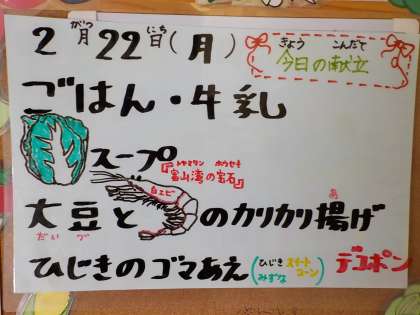 がつ にち
2月22日(月)
きょう こんだて
今日の献立
ごはん・牛乳
スープ
トヤマワン ホウセキ
『富山湾の宝石』
白エビ
大豆と のカリカリ揚げ
だいづ あ
ひじきのゴマあえ(ひじき スイートコーン みずな) デコポン